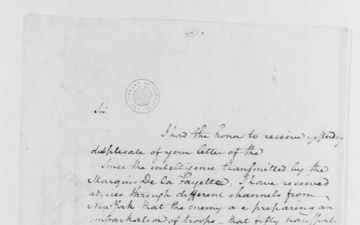 Sir
I had the honor to receive yesterday
duplicate of your letter of the
Since the intelligence transmitted by the
Marquis De La Fayette, I have received
advices through different channels from
New York that the enemy are preparing an
embarkation of troops - that fifty transport